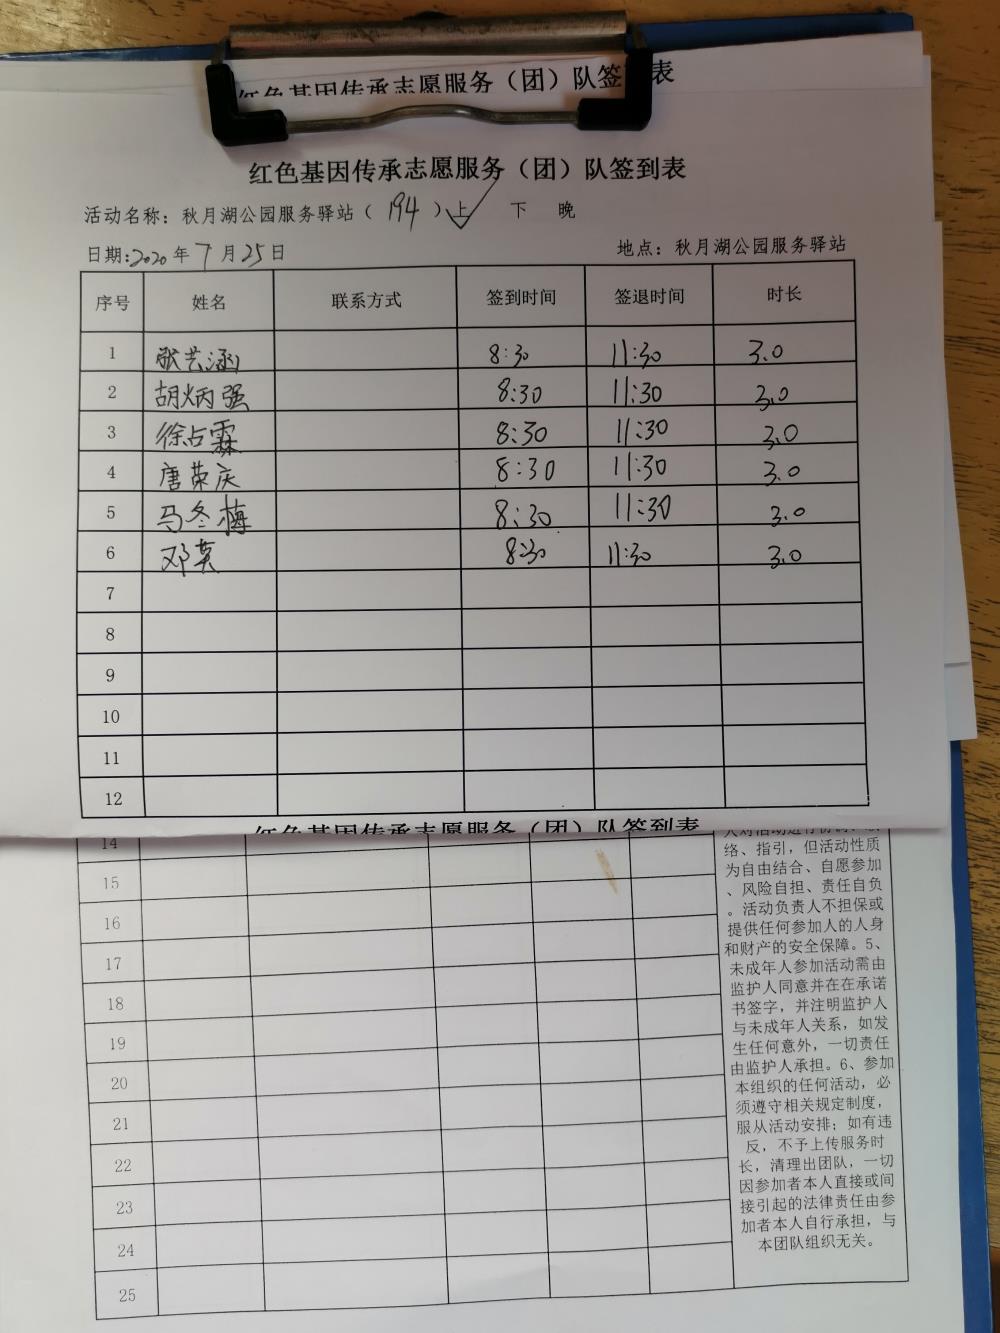 红色基因传承志愿服务（团）队签到表
红色基因传承志愿服务（团）队签到表
活动名称：秋月湖公园服务驿站（194）上✓ 下 晚
日期:2020年7月25日 地点：秋月湖公园服务驿站
序号 姓名 联系方式 签到时间 签退时间 时长
1 张艺涵 8:30 11:30 3.0
2 胡炳强 8:30 11:30 3.0
3 徐占霖 8:30 11:30 3.0
4 唐荣庆 8:30 11:30 3.0
5 马冬梅 8:30 11:30 3.0
6 邓英 8:30 11:30 3.0
7
8
9
10
11
12
红色基因传承志愿服务（团）队签到表
14
15
16
17
18
19
20
21
22
23
24
25
络、指引，但活动性质
为自由结合、自愿参加
、风险自担、责任自负
。活动负责人不担保或
提供任何参加人的人身
和财产的安全保障。5、
未成年人参加活动需由
监护人同意并在在承诺
书签字，并注明监护人
与未成年人关系，如发
生任何意外，一切责任
由监护人承担。6、参加
本组织的任何活动，必
须遵守相关规定制度，
服从活动安排；如有违
反，不予上传服务时
长，清理出团队，一切
因参加者本人直接或间
接引起的法律责任由参
加者本人自行承担，与
本团队组织无关。